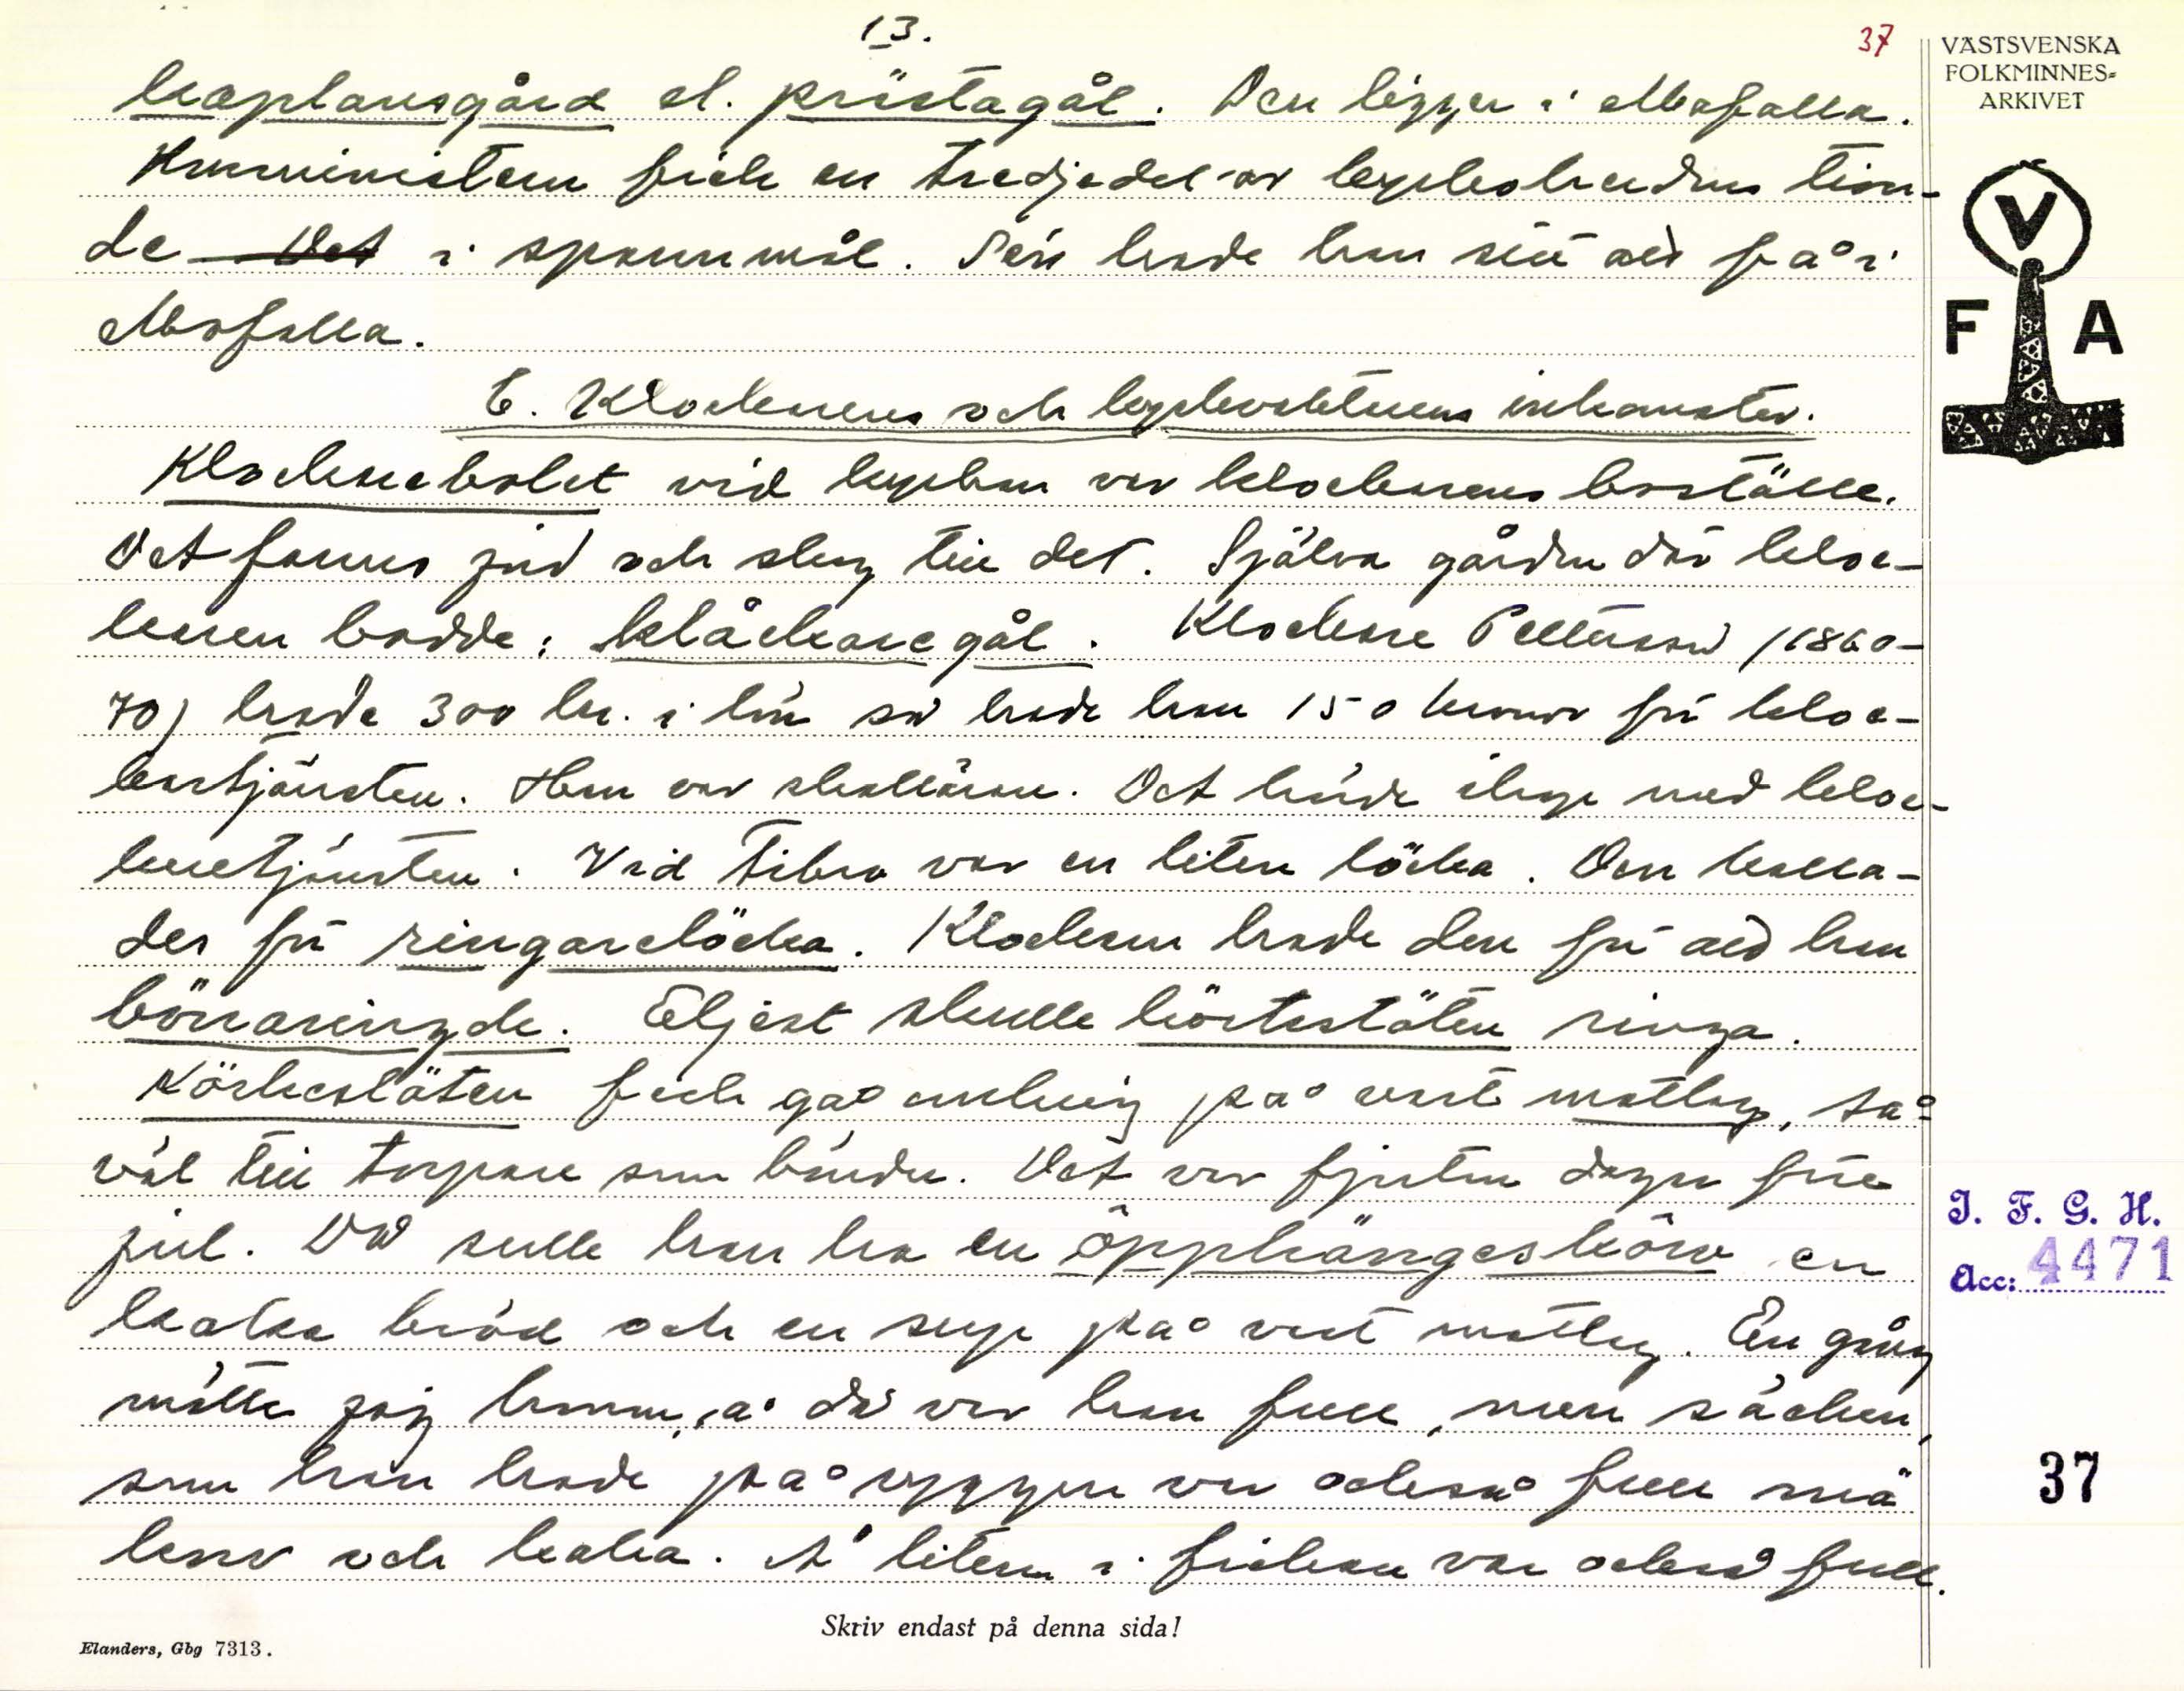 13.
37
VÄSTSVENSKA
FOLKMINNES=
ARKIVET
kaplansgård el. prästagål. Den ligger i Mofalla.
Komministern fick en tredjedel av kyrkoherdens tion-
de i spannmål. Sen hade han sitt att få i
Mofalla.
E. Klockarens och kyrkvaktarens inkomster.
Klockarebolet vid kyrkan var klockarens boställe.
Det fanns jord och skog till det. Själva gården där kloc-
karen bodde: klåckaregål. Klockare Pettersson (1860-
70) hade 300 kr. i lön så hade han 150 kronor för kloc-
kartjänsten. Han var skollärare. Det hörde ihop med kloc-
karetjänsten. Vid Tibro var en liten löcka. Den kalla-
des för ringarelöcka. Klockarn hade den för att han
bönaringde. Eljest skulle körkstöten ringa.
Körkestöten feck gå omkring på vart matlag, så-
väl till torpare som bönder. Det var fjorton dagar före
jul. Då sulle han ha en öpphängeskörv en
kaka bröd och en sup på vart matlag. En gång
mötte jag honom, å då var han full, men säcken,
som han hade på ryggen var också full mä
korv och kaka. Å litern i fickan var också full.
V
F A
I. F. G. H.
Acc: 4471
37
Skriv endast på denna sida!
Elanders, Gbg 7313.